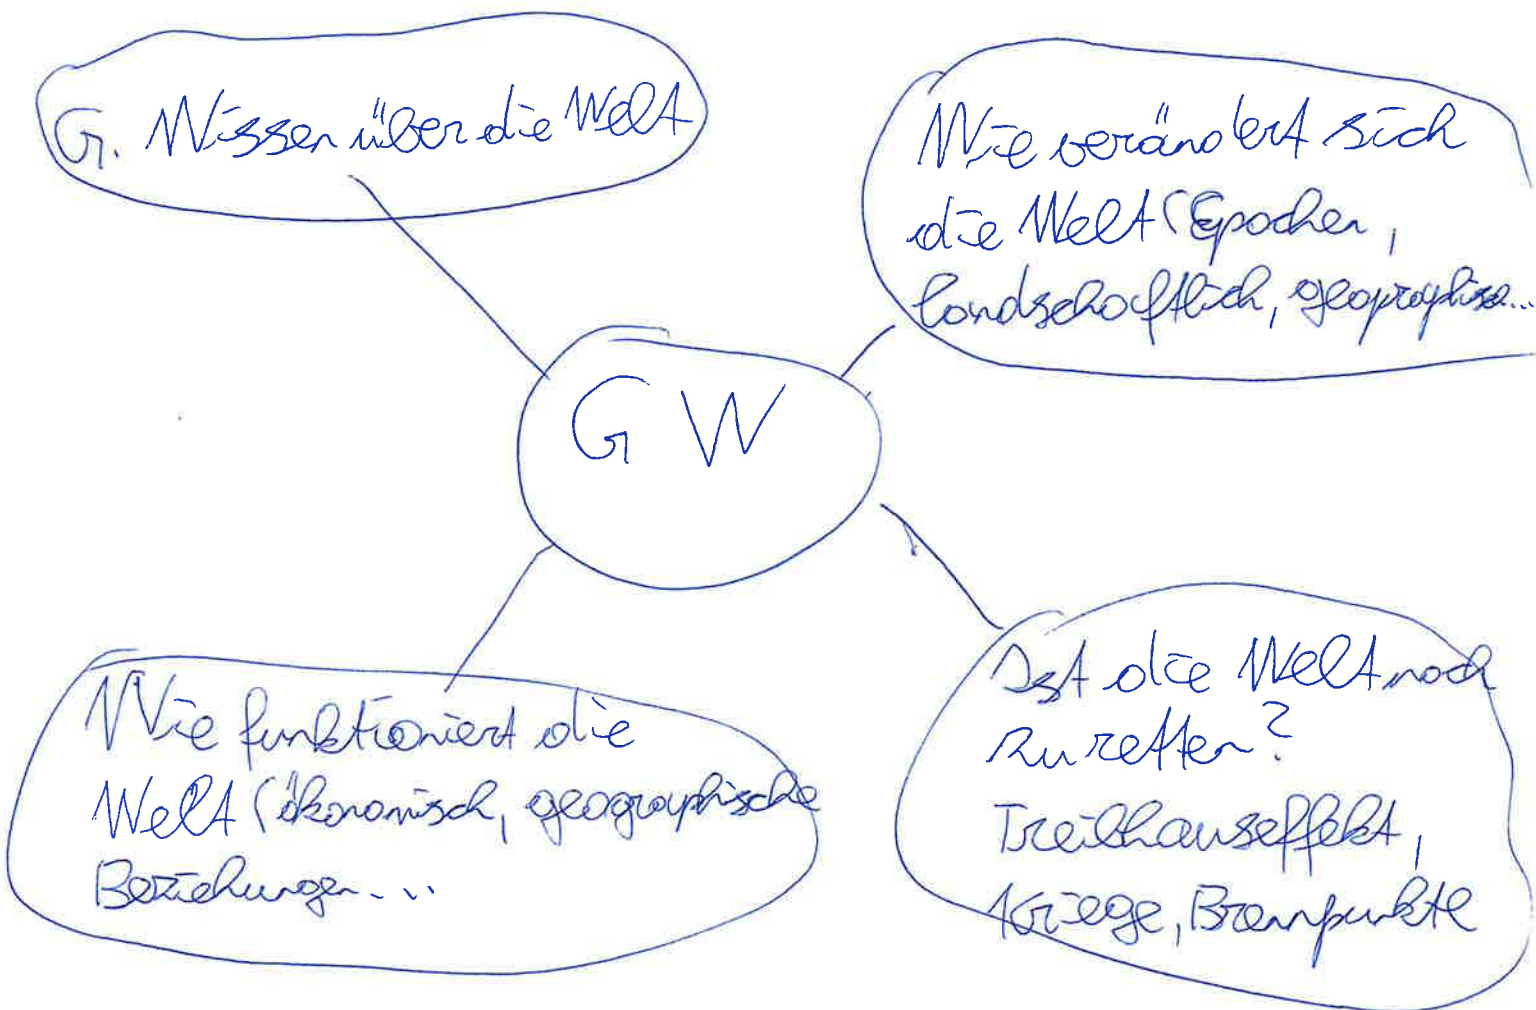 G. Wissen über die Welt
Wie verändert sich
die Welt (Epochen,
landschafftlich, geographisc...
G W
Wie funktioniert die
Welt (ökonomisch, geographische
Beziehungen...
Ist die Welt noch
zu retten?
Treibhauseffekt,
Kriege, Brennpunkte